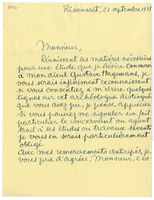 Rixensart, 21 septembre 19
Monsieur,
Réunissant les matières nécessaires
pour une étude que je désire consacrer
à mon aïeul Gustave Hagemans, je
vous serais infiniment reconnaissant
si vous consentiez à m'écrire quelques
lignes sur cet archéologue distingué
que vous avez pu, je pense, apprécier.
Si vous pouviez me signaler un fait
particulier le concernant ou ayant
trait à ses études ou travaux
je vous en serais particulièrement
obligé.
Avec mes remerciements anticipés, je
vous prie d'agréer, Monsieur, l'ex